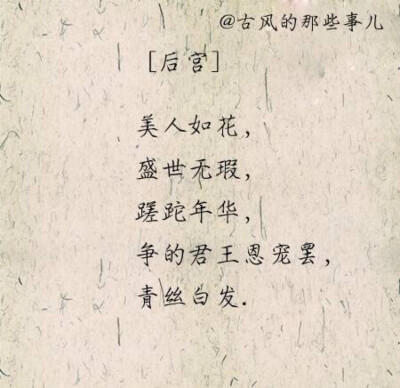 @古风的那些事儿
[后宫]
美人如花,
盛世无瑕,
蹉跎年华,
争的君王恩宠罢,
青丝白发.